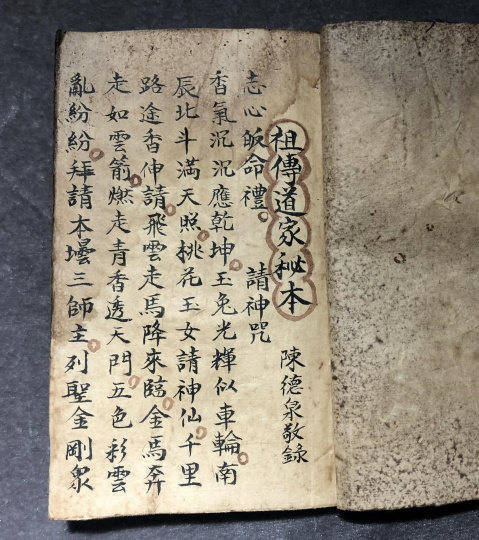 祖傳道家秘本
陳德泉敬錄
志心皈命禮。 請神咒
香氣沉沉應乾坤。玉兔光輝似車輪。南
辰北斗滿天照。桃花玉女請神仙。千里
路途香伸請。飛雲走馬降來臨。金馬奔
走如雲箭。燃走青香透天門。五色彩雲
亂紛紛。拜請本壇三師主。列聖金剛眾